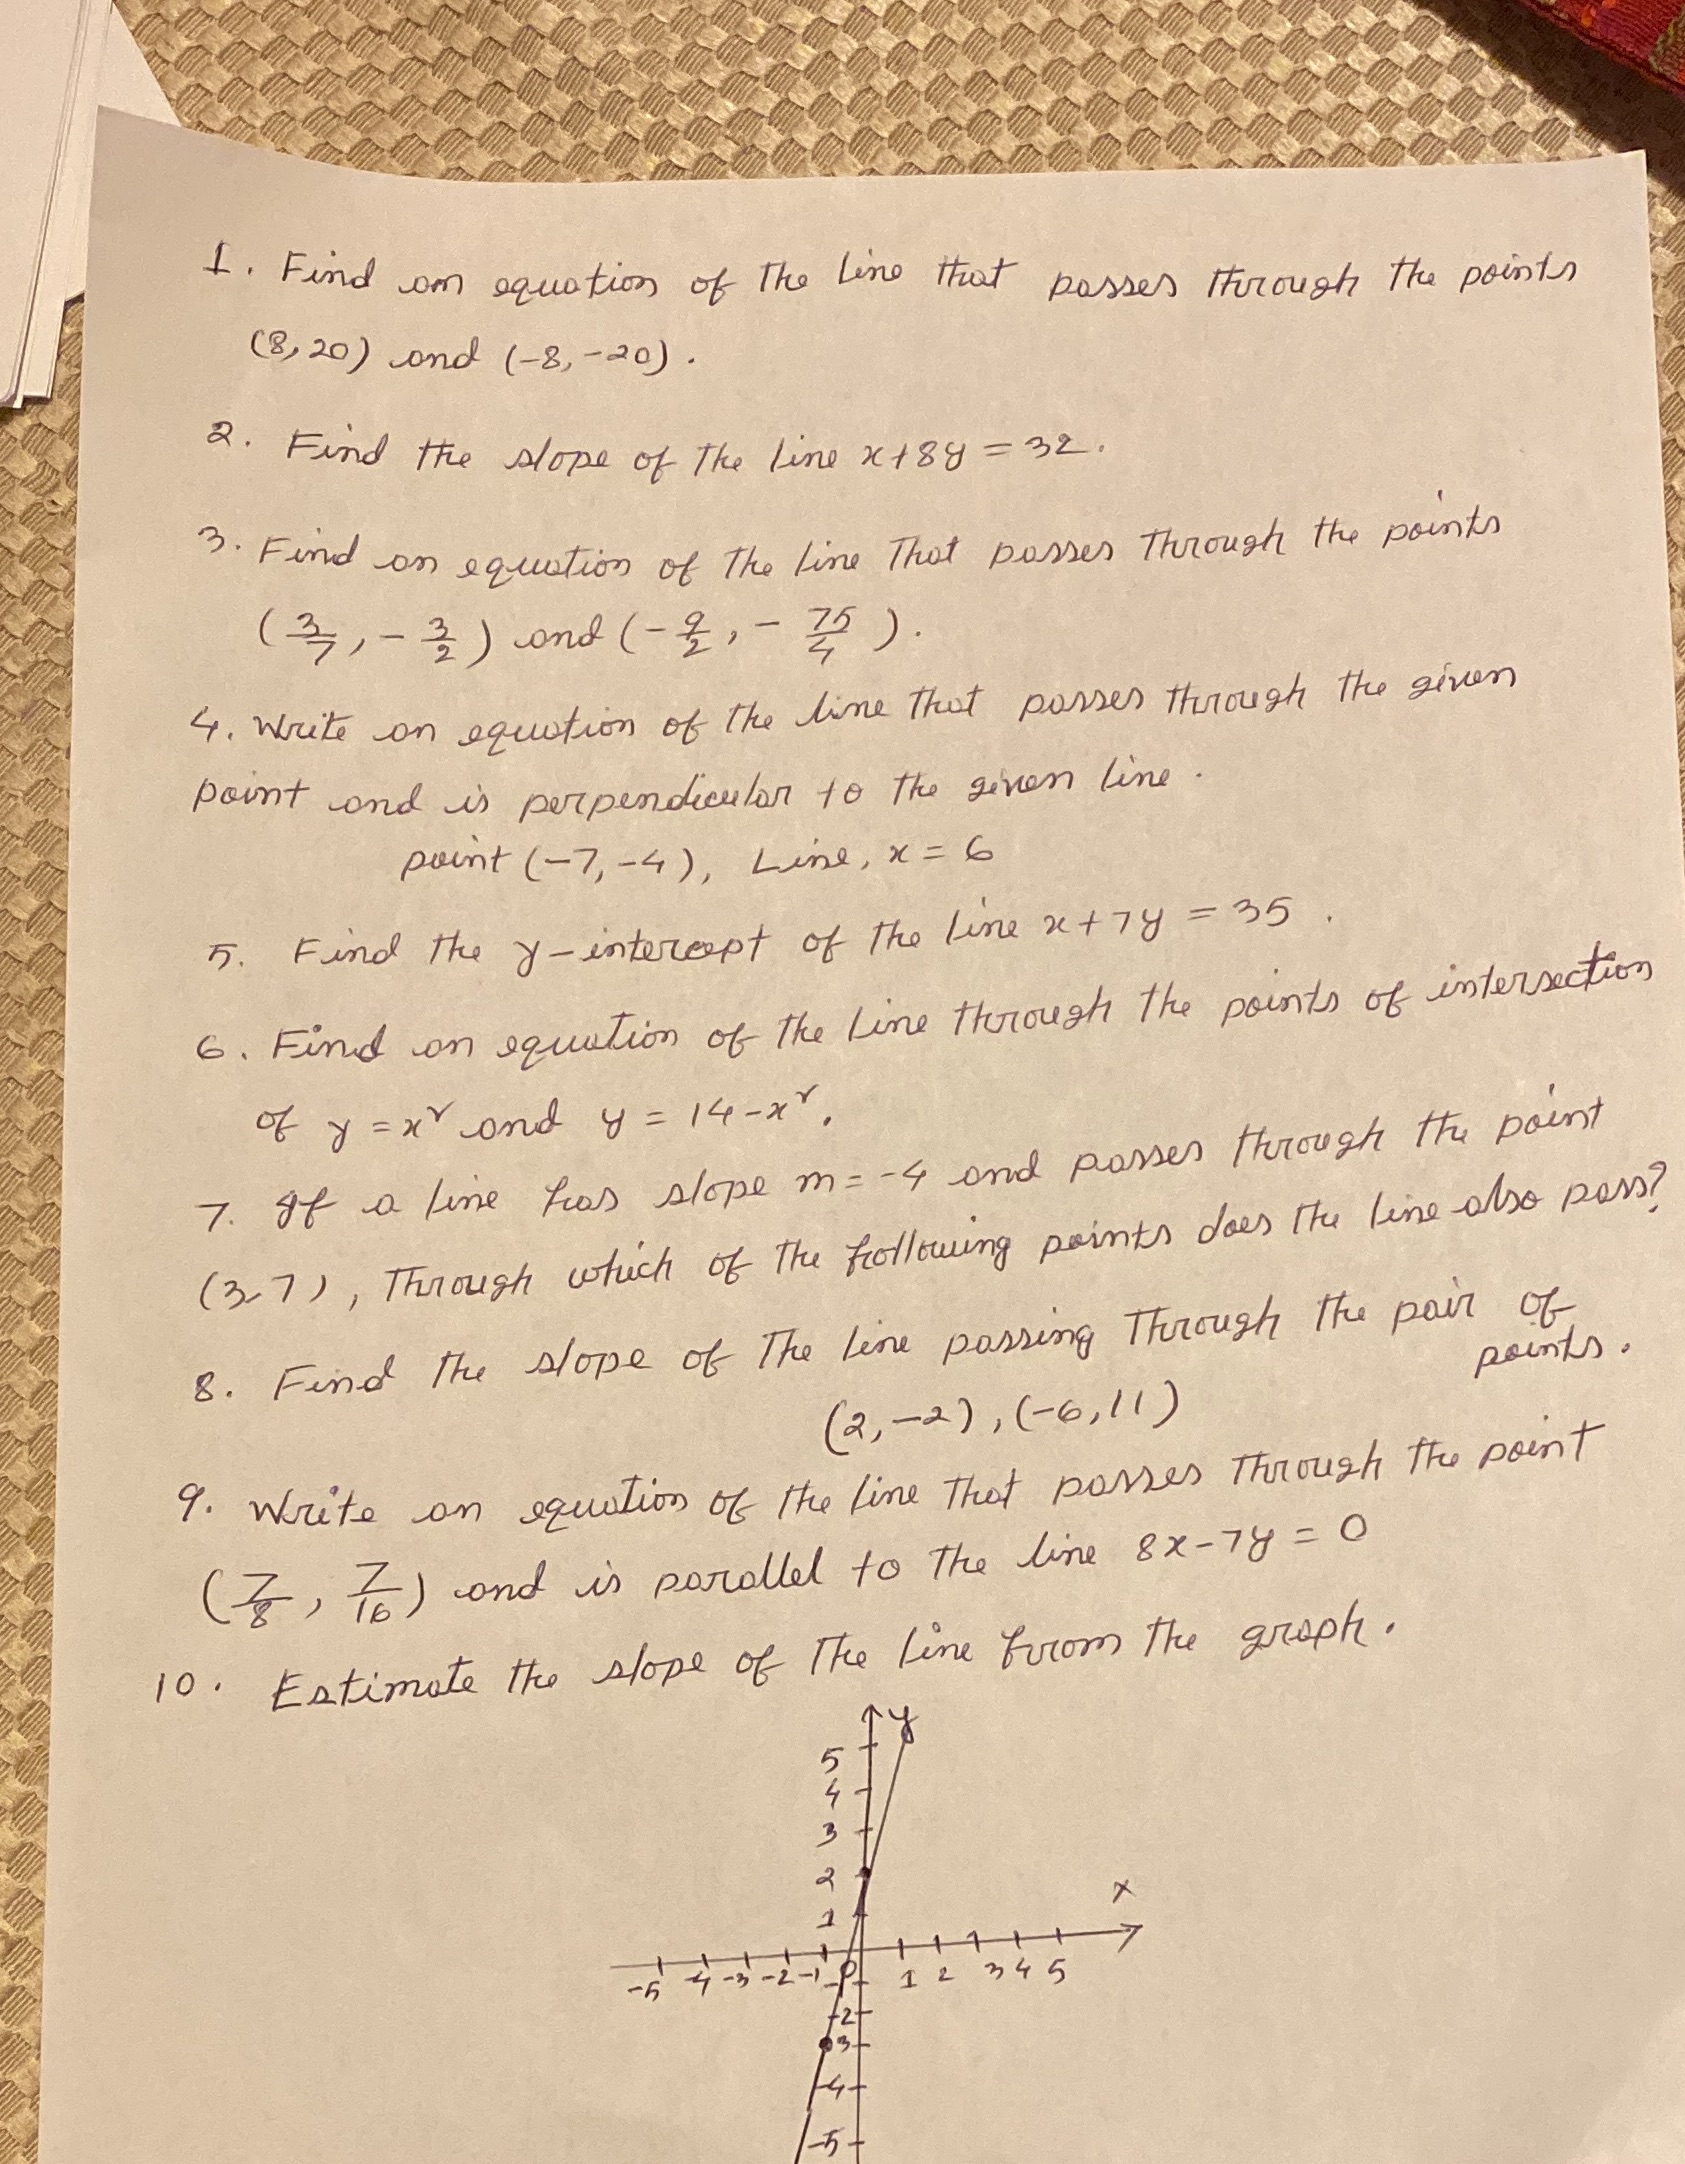 1. Find an equation of the line that passes through the points
(8,20) and (-8,-20).
2. Find the slope of the line x+8y=32.
3. Find an equation of the line that passes through the points
(3/7, -3/2) and (-9/2, -75/4).
4. Write an equation of the line that passes through the given
point and is perpendicular to the given line.
point (-7,-4), Line, x=6
5. Find the y-intercept of the line x+7y=35.
6. Find an equation of the line through the points of intersection
of y=x² and y=14-x².
7. If a line has slope m=-4 and passes through the point
(3,7), Through which of the following points does the line also pass?
8. Find the slope of the line passing through the pair of
points.
(2,-2), (-6,11)
9. Write an equation of the line that passes through the point
(7/8, 7/16) and is parallel to the line 8x-7y=0
10. Estimate the slope of the line from the graph.
y
5
4
3
2
x
1
-5 -4 -3 -2 -1 0 1 2 3 4 5
-2
3
-4
-5